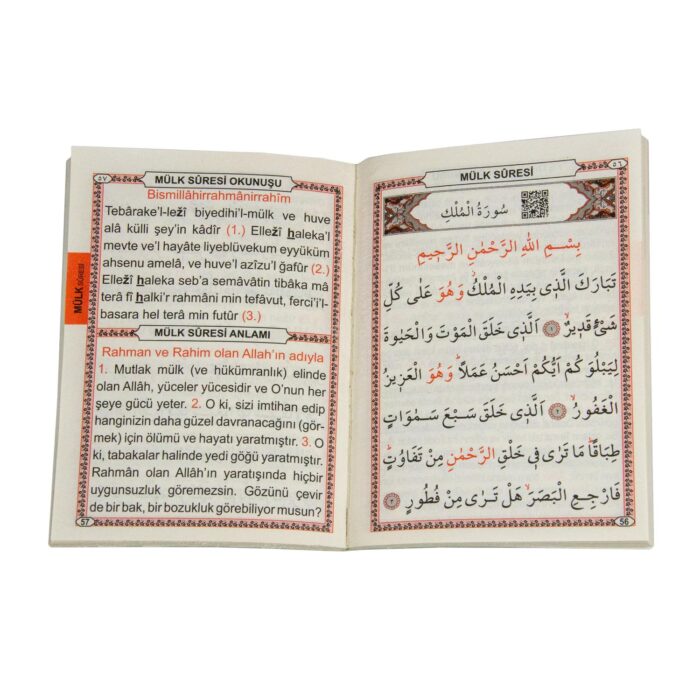 ٥٧
MÜLK SÛRESİ OKUNUŞU
Bismillâhirrahmânirrahîm
Tebârake'l-lezî biyedihi'l-mülk ve huve
alâ külli şey'in kâdîr (1.) Ellezî haleka'l
mevte ve'l hayâte liyeblüvekum eyyüküm
ahsenu amelâ, ve huve'l azîzu'l ğafûr (2.)
Ellezî haleka seb'a semâvâtin tibâka mâ
terâ fî halki'r rahmâni min tefâvut, ferci'i'l-
basara hel terâ min futûr (3.)
MÜLK SÛRESİ
MÜLK SÛRESİ ANLAMI
Rahman ve Rahim olan Allah'ın adıyla
1. Mutlak mülk (ve hükümranlık) elinde
olan Allah, yüceler yücesidir ve O'nun her
şeye gücü yeter. 2. O ki, sizi imtihan edip
hanginizin daha güzel davranacağını (gör-
mek) için ölümü ve hayatı yaratmıştır. 3. O
ki, tabakalar halinde yedi göğü yaratmıştır.
Rahmân olan Allâh'ın yaratışında hiçbir
uygunsuzluk göremezsin. Gözünü çevir
de bir bak, bir bozukluk görebiliyor musun?
57
MÜLK SÛRESİ
٥٦
سُورَةُ الْمُلْكِ
بِسْمِ اللهِ الرَّحْمٰنِ الرَّحِيمِ
تَبَارَكَ الَّذِي بِيَدِهِ الْمُلْكُ وَهُوَ عَلٰى كُلِّ
شَيْءٍ قَدِيرٌ ١ اَلَّذِي خَلَقَ الْمَوْتَ وَالْحَيٰوةَ
لِيَبْلُوَكُمْ اَيُّكُمْ اَحْسَنُ عَمَلًا وَهُوَ الْعَزِيزُ
الْغَفُورُ ٢ اَلَّذِي خَلَقَ سَبْعَ سَمٰوَاتٍ
طِبَاقًا مَا تَرٰى فِي خَلْقِ الرَّحْمٰنِ مِنْ تَفَاوُتٍ
فَارْجِعِ الْبَصَرَ هَلْ تَرٰى مِنْ فُطُورٍ ٣
56